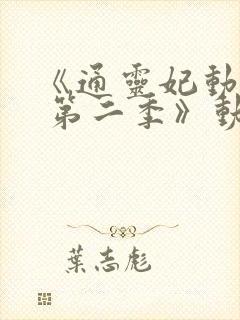 《通靈妃動
第二季》動
葉志彪